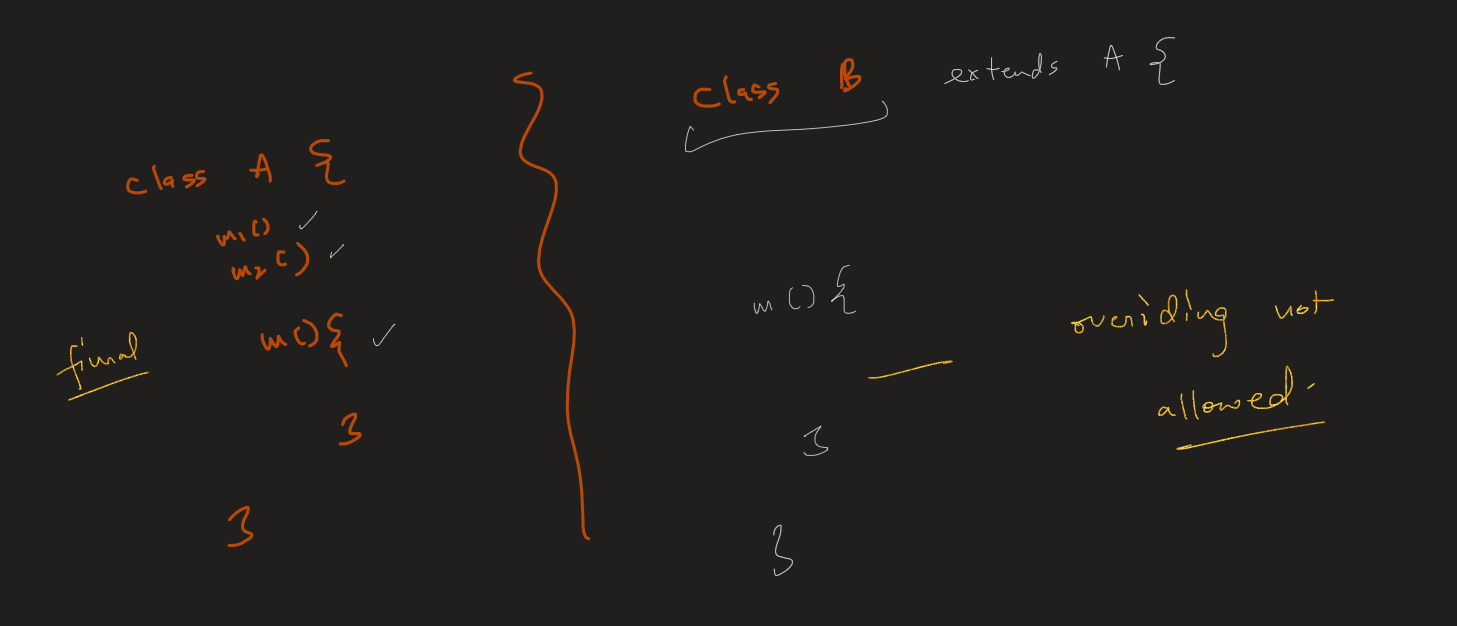 class A {
m1()
m2()
final m() {
}
}
class B extends A {
m() {
}
}
overiding not
allowed.